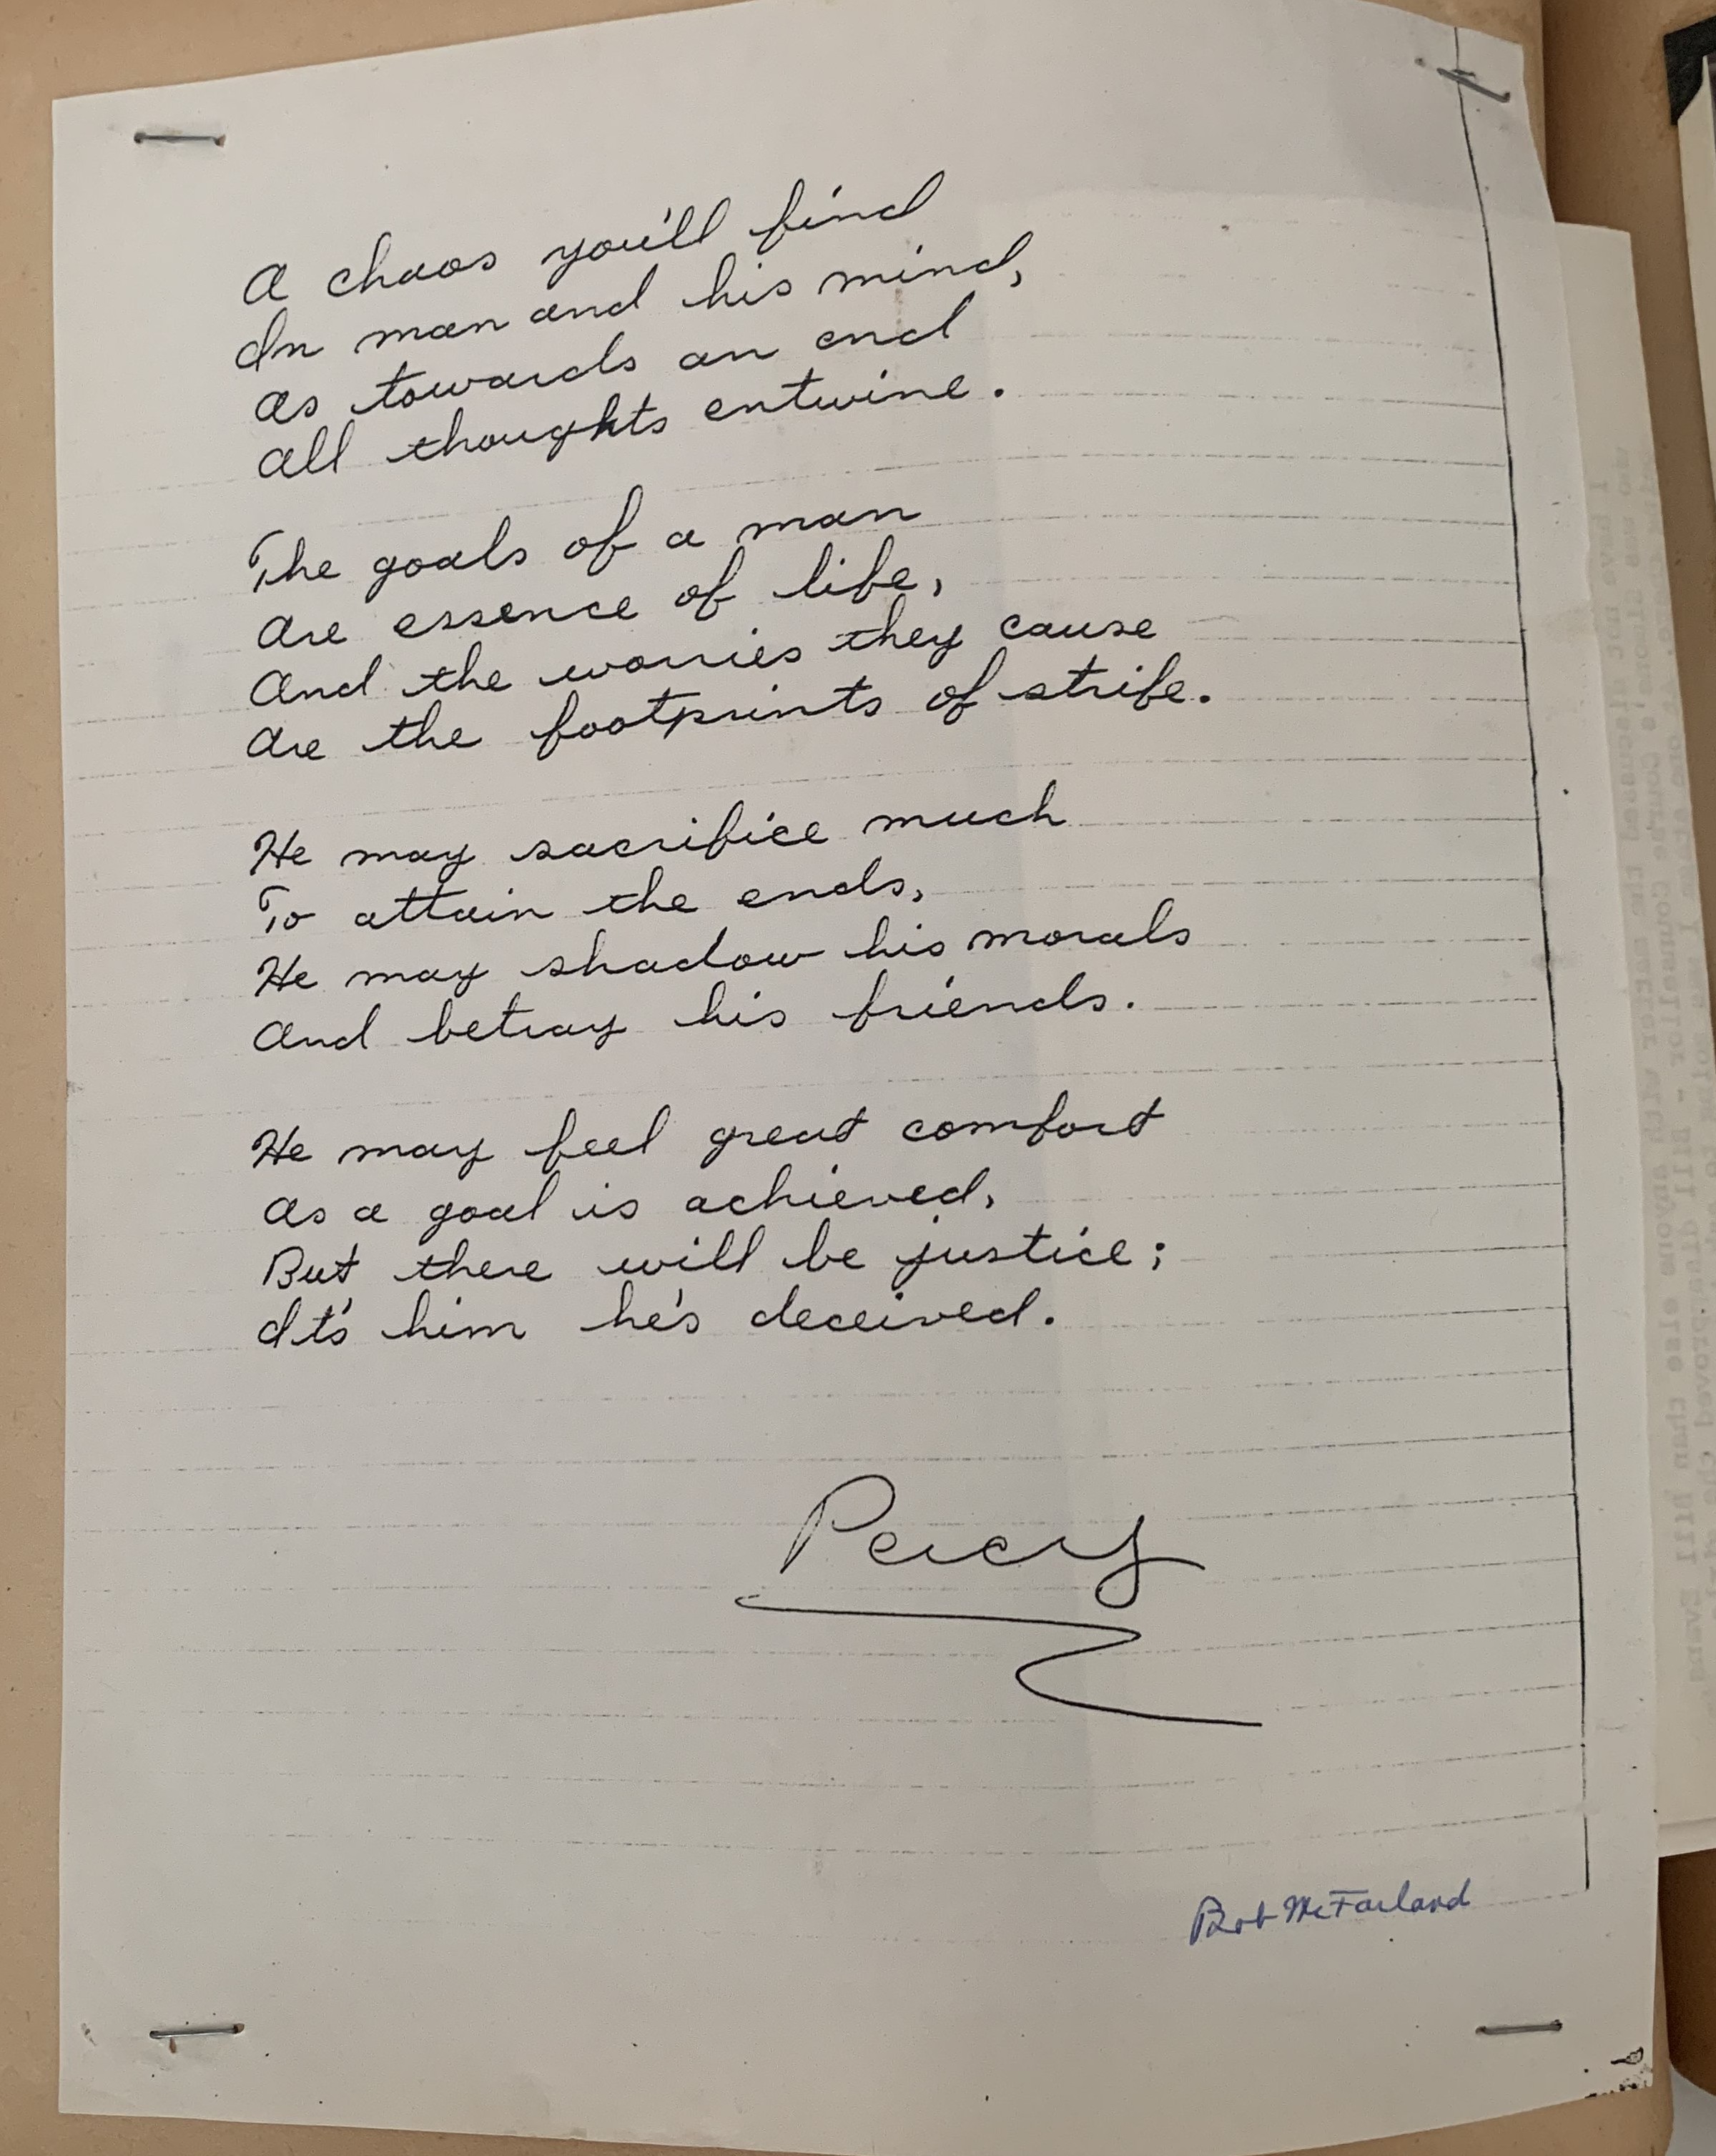 A chaos you'll find
In man and his mind,
As towards an end
All thoughts entwine.
The goals of a man
Are essence of life,
And the worries they cause
Are the footprints of strife.
He may sacrifice much
To attain the ends,
He may shadow his morals
And betray his friends.
He may feel great comfort
As a goal is achieved,
But there will be justice;
It's him he's deceived.
Percy
Bob McFarland